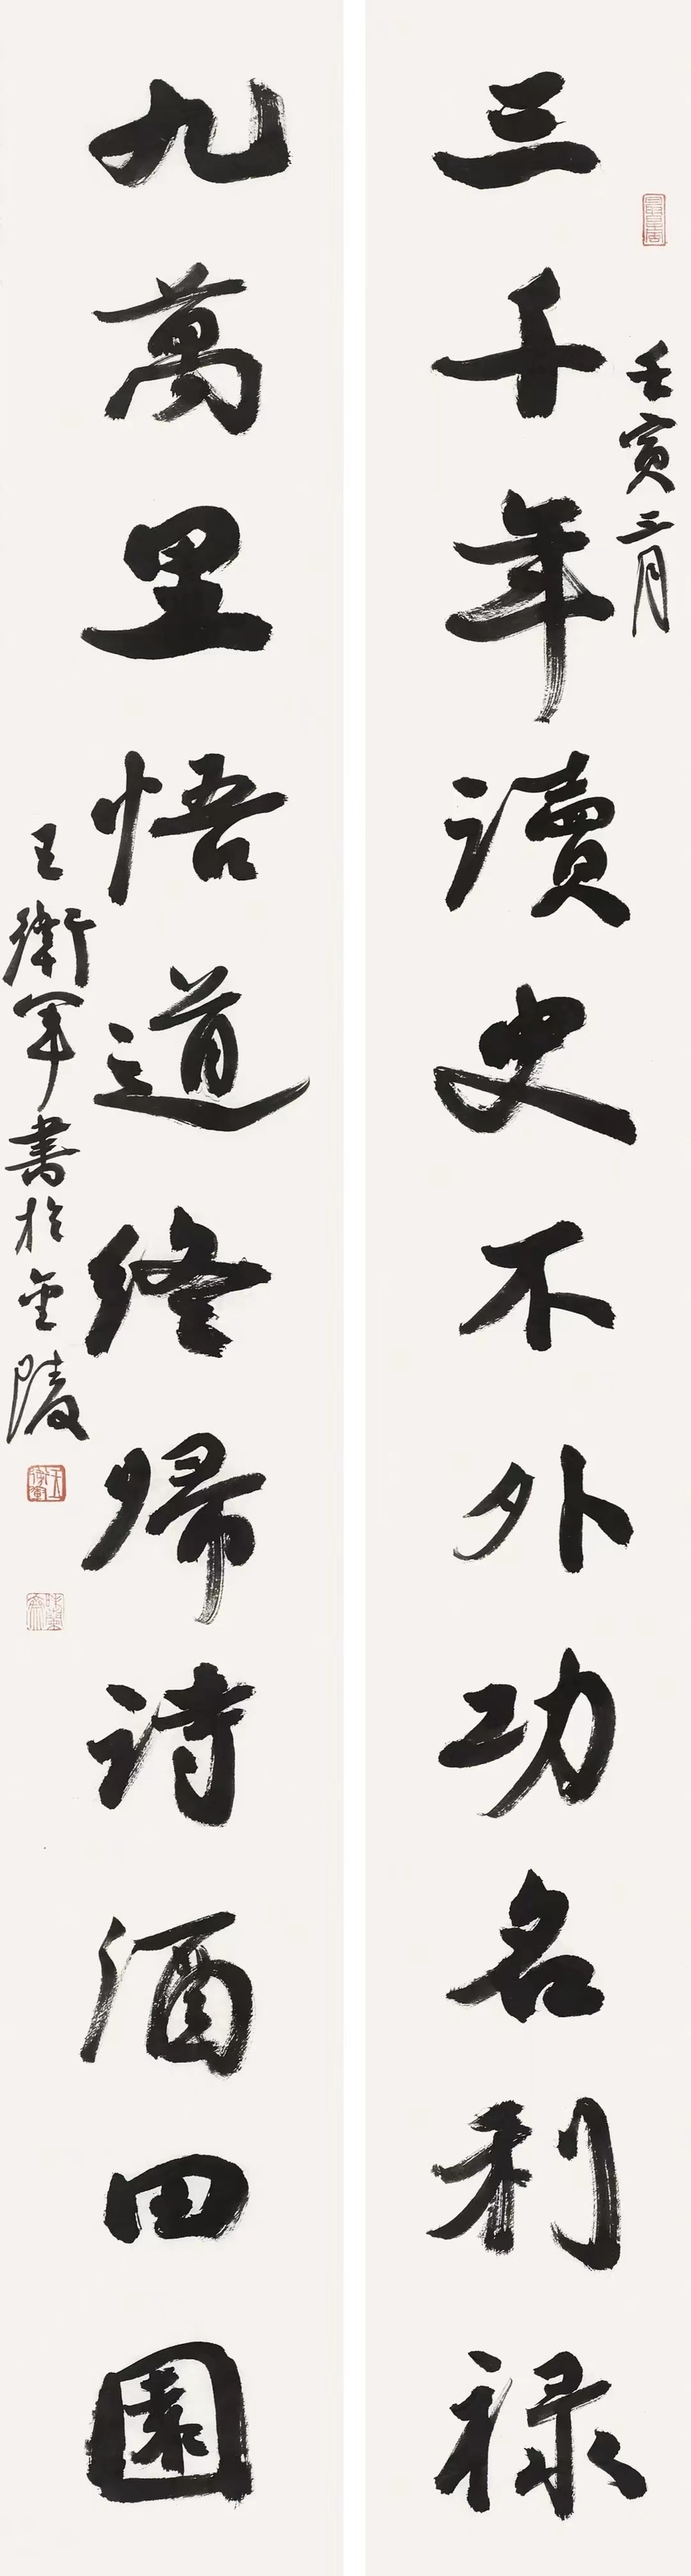 壬寅三月
三千年讀史不外功名利禄
九萬里悟道終歸詩酒田園
王衛軍書於金陵